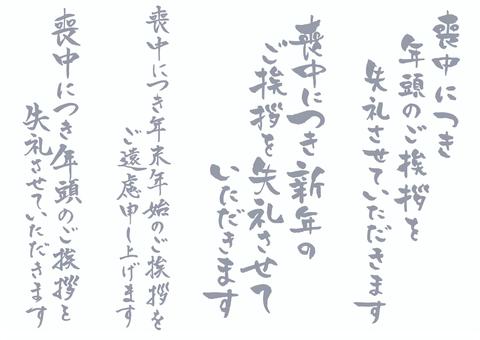 喪中につき
年頭のご挨拶を
失礼させていただきます
喪中につき新年の
ご挨拶を失礼させて
いただきます
喪中につき年末年始のご挨拶を
ご遠慮申し上げます
喪中につき年頭のご挨拶を
失礼させていただきます